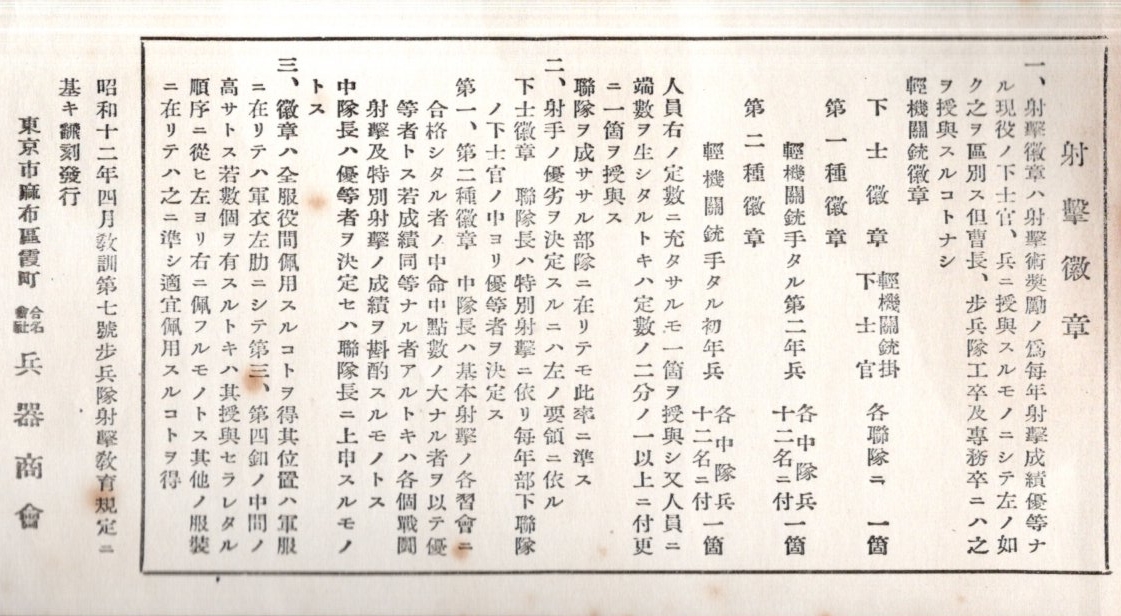 射擊徽章
一、射擊徽章ハ射擊術奬勵ノ爲每年射擊成績優等ナ
ル現役ノ下士官、兵ニ授與スルモノニシテ左ノ如
ク之ヲ區別ス但曹長、步兵隊工卒及專務卒ニハ之
ヲ授與スルコトナシ
輕機關銃徽章
下士徽章 輕機關銃掛下士官 各聯隊ニ 一箇
第一種徽章
輕機關銃手タル第二年兵 各中隊兵十二名ニ付 一箇
第二種徽章
輕機關銃手タル初年兵 各中隊兵十二名ニ付 一箇
人員右ノ定數ニ充タサルモ一箇ヲ授與シ又人員ニ
端數ヲ生シタルトキハ定數ノ二分ノ一以上ニ付更
ニ一箇ヲ授與ス
聯隊ヲ成ササル部隊ニ在リテモ此率ニ準ス
二、射手ノ優劣ヲ決定スルニハ左ノ要領ニ依ル
下士徽章 聯隊長ハ特別射擊ニ依リ每年部下聯隊
ノ下士官ノ中ヨリ優等者ヲ決定ス
第一、第二種徽章 中隊長ハ基本射擊ノ各習會ニ
合格シタル者ノ中命中點數ノ大ナル者ヲ以テ優
等者トス若成績同等ナル者アルトキハ各個戰鬪
射擊及特別射擊ノ成績ヲ斟酌スルモノトス
中隊長ハ優等者ヲ決定セハ聯隊長ニ上申スルモノ
トス
三、徽章ハ全服役間佩用スルコトヲ得其位置ハ軍服
ニ在リテハ軍衣左肋ニシテ第三、第四釦ノ中間ノ
高サトス若數個ヲ有スルトキハ其授與セラレタル
順序ニ從ヒ左ヨリ右ニ佩フルモノトス其他ノ服裝
ニ在リテハ之ニ準シ適宜佩用スルコトヲ得
昭和十二年四月敎訓第七號步兵隊射擊敎育規定ニ
基キ飜刻發行
東京市麻布區霞町 合名會社 兵器商會